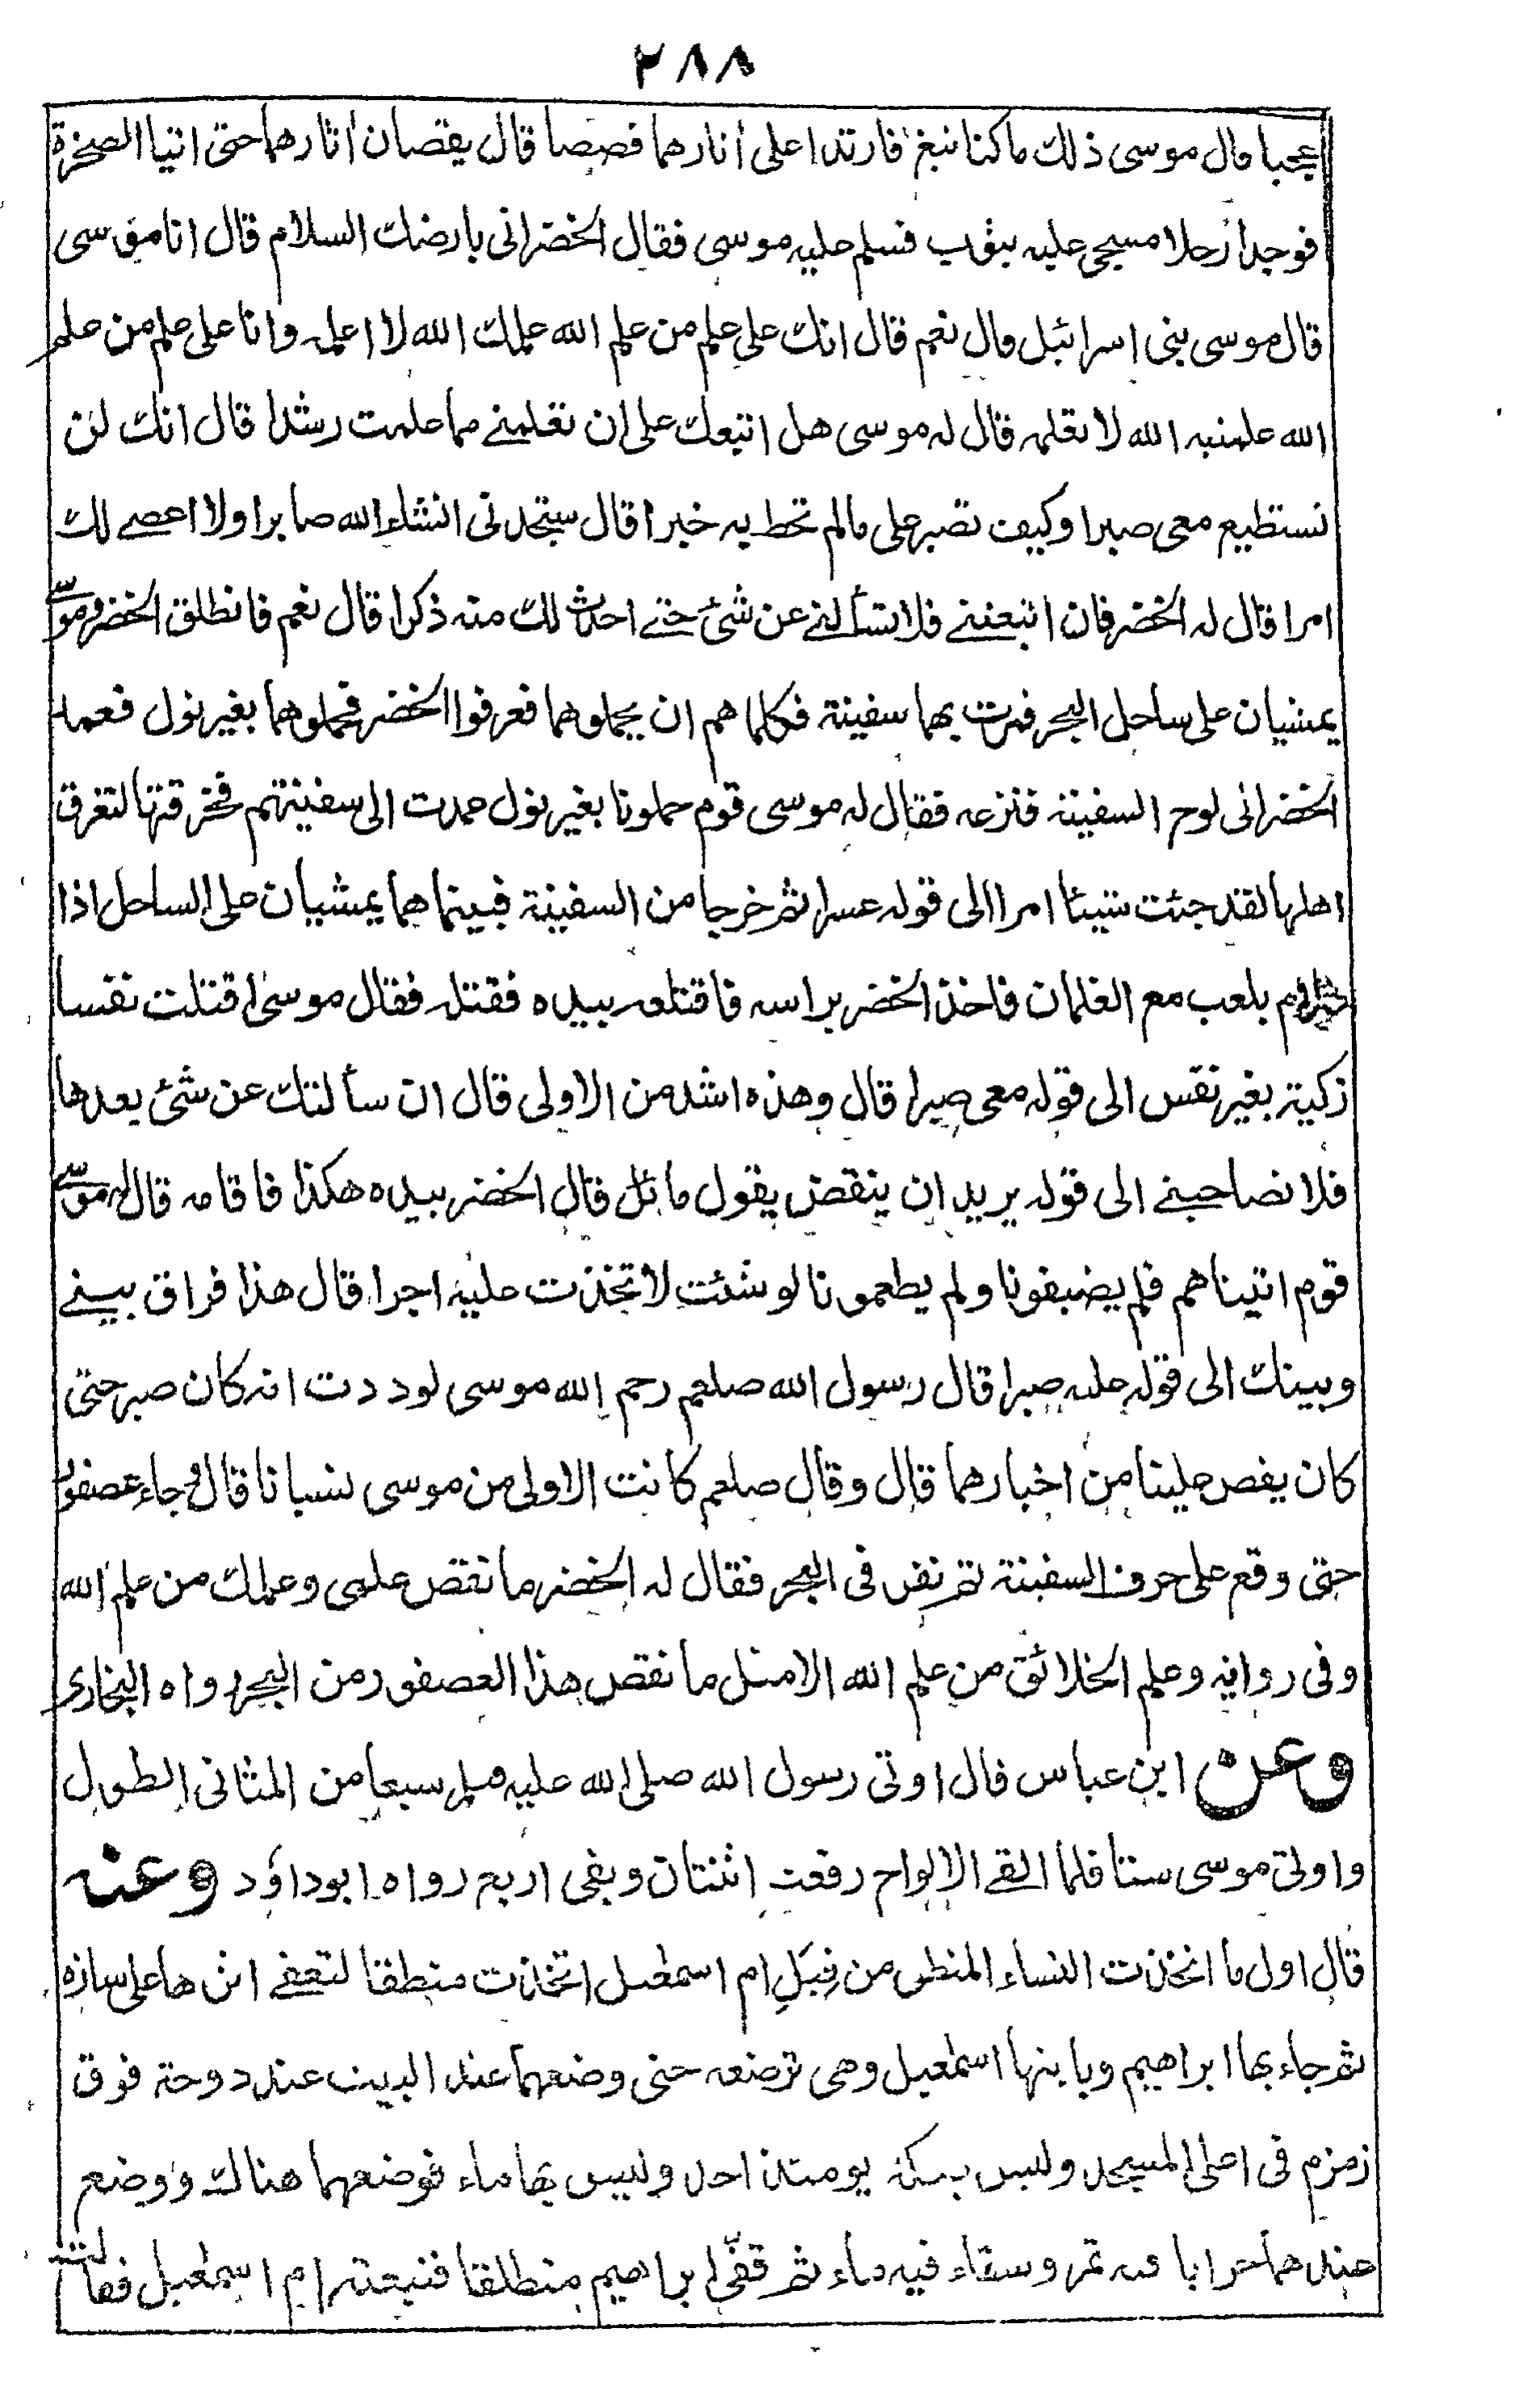 ٢٨٨
عجبا قال موسى ذلك ما كنا نبغ فارتدا على أثارهما قصصا قال يقصان أثارهما حتى اتيا الصخرة
فوجدا رجلا مسجى عليه بثوب فسلم عليه موسى فقال الخضر انى بارضك السلام قال انا موسى
قال موسى بنى اسرائيل قال نعم قال انك على علم من علم الله علمك الله لا اعلمه وانا على علم من علم
الله علمنيه الله لا تعلمه قال له موسى هل اتبعك على ان تعلمنے مما علمت رشدا قال انك لن
تستطيع معى صبرا وكيف تصبر على مالم تحط به خبرا قال ستجدنى انشاء الله صابرا ولا اعصے لك
امرا قال له الخضر فان اتبعتنے فلا تسألنے عن شئ حتے احدث لك منه ذكرا قال نعم فانطلق الخضر وموسے
يمشيان على ساحل البحر فمرت بهما سفينة فكلماهم ان يحملوهما فعرفوا الخضر فحملوهما بغير نول فعمد
الخضر الى لوح السفينة فنزعه فقال له موسى قوم حملونا بغير نول عمدت الى سفينتهم فخرقتها لتغرق
اهلها لقد جئت شيئا امرا الى قوله عسرا ثم خرجا من السفينة فبينما هما يمشيان على الساحل اذا
غلام يلعب مع الغلمان فاخذ الخضر براسه فاقتلعه بيده فقتله فقال موسى اقتلت نفسا
زكية بغير نفس الى قوله معى صبرا قال وهذه اشد من الاولى قال ان سألتك عن شئ بعدها
فلا تصاحبنے الى قوله يريد ان ينقض يقول مائل قال الخضر بيده هكذا فاقامه قال له موسے
قوم اتيناهم فلم يضيفونا ولم يطعمونا لو شئت لاتخذت عليه اجرا قال هذا فراق بينے
وبينك الى قوله عليه صبرا قال رسول الله صلعم رحم الله موسى لوددت انه كان صبر حتى
كان يقص علينا من اخبارهما قال وقال صلعم كانت الاولى من موسى نسيانا قال وجاء عصفور
حتى وقع على حرف السفينة ثم نقر فى البحر فقال له الخضر ما نقص علمى وعلمك من علم الله
وفى رواية وعلم الخلائق من علم الله الا مثل ما نقص هذا العصفور من البحر رواه البخارى
وعن ابن عباس قال اوتى رسول الله صلى الله عليه وسلم سبعا من المثانى الطول
واوتى موسى ستا فلما القے الالواح رفعت اثنتان وبقى اربع رواه ابوداؤد وعنه
قال اول ما اتخذت النساء المنطق من قِبَلِ ام اسمعيل اتخذت منطقا لتعفے اثرها على سارة
ثم جاء بها ابراهيم وبابنها اسمعيل وهى ترضعه حتى وضعهما عند البيت عند دوحة فوق
زمزم فى اعلى المسجد وليس بمكة يومئذ احد وليس بها ماء فوضعهما هنالك ووضع
عندهما جرابا فيه تمر وسقاء فيه ماء ثم قفّى ابراهيم منطلقا فتبعته ام اسمعيل فقالت